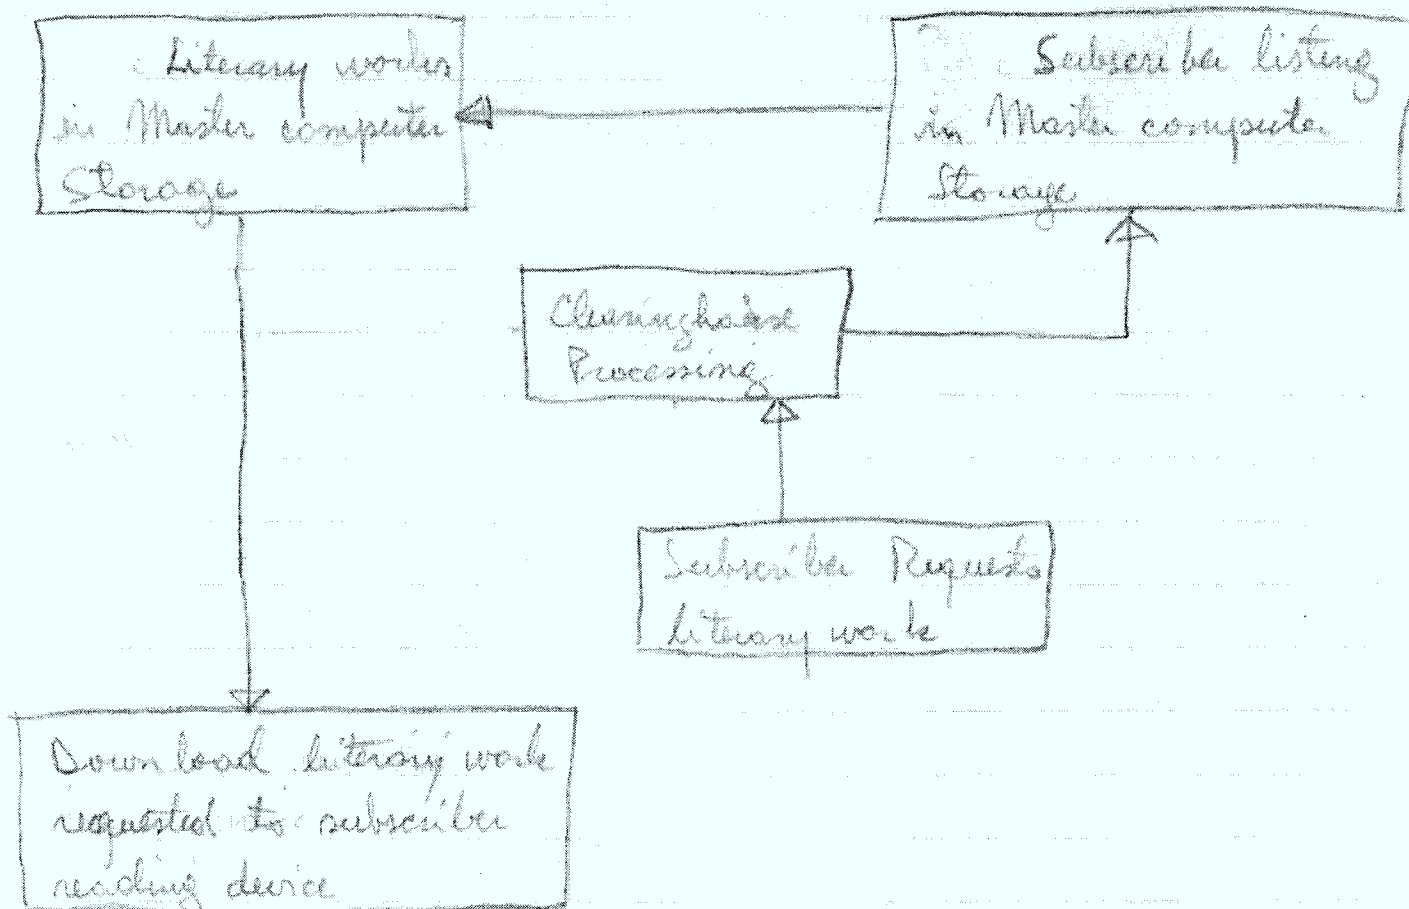 Literary works
in Master computer
Storage
Subscriber listing
in Master computer
Storage
Clearinghouse
Processing
Subscriber Requests
literary work
Download literary work
requested to subscriber
reading device